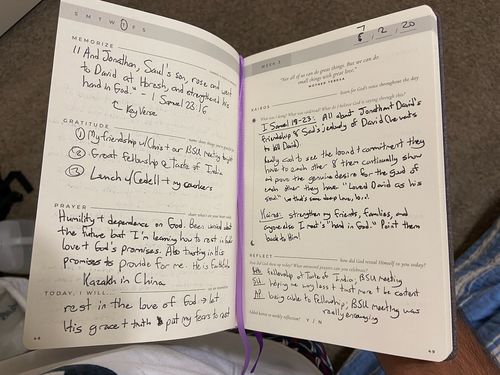 S M T W T F S
MEMORIZE
"And Jonathan, Saul's son, rose and went
to David at Horesh, and strengthened his
hand in God." - 1 Samuel 23:16
Key Verse
GRATITUDE
① My friendship w/ Chris + our BSU meeting
② Great fellowship @ Taste of India
③ Lunch w/ Cedell + my coworkers
PRAYER
Humility + dependence on God. Been worried about
the future but I'm learning how to rest in God's
love + God's promises. Also trusting in his
promises to provide for me. He is faithful
Kazakh in China
TODAY, I WILL...
rest in the love of God → let
His grace + truth put my fears to rest
48
WEEK 2
7 / 2 / 20
"Not all of us can do great things. But we can do
small things with great love."
MOTHER TERESA
KAIROS
listen for God's voice throughout the day
I Samuel 18-23: All about Jonathan + David's
friendship & Saul's jealousy of David (he wants
to kill David)
Really cool to see the bond + commitment they
have to each other & them continually show
and prove the genuine desire for the good of
each other. They have "Loved David as his
soul"
Kairos: strengthen my friends, families, and
anyone else I meet's "hand in God." Point them
back to Him!
REFLECT
how did God reveal Himself to you today?
fellowship at Taste of India, BSU meeting
helping me worry less + trust more + be content
being able to fellowship, BSU meeting was
really encouraging
Y / N
49